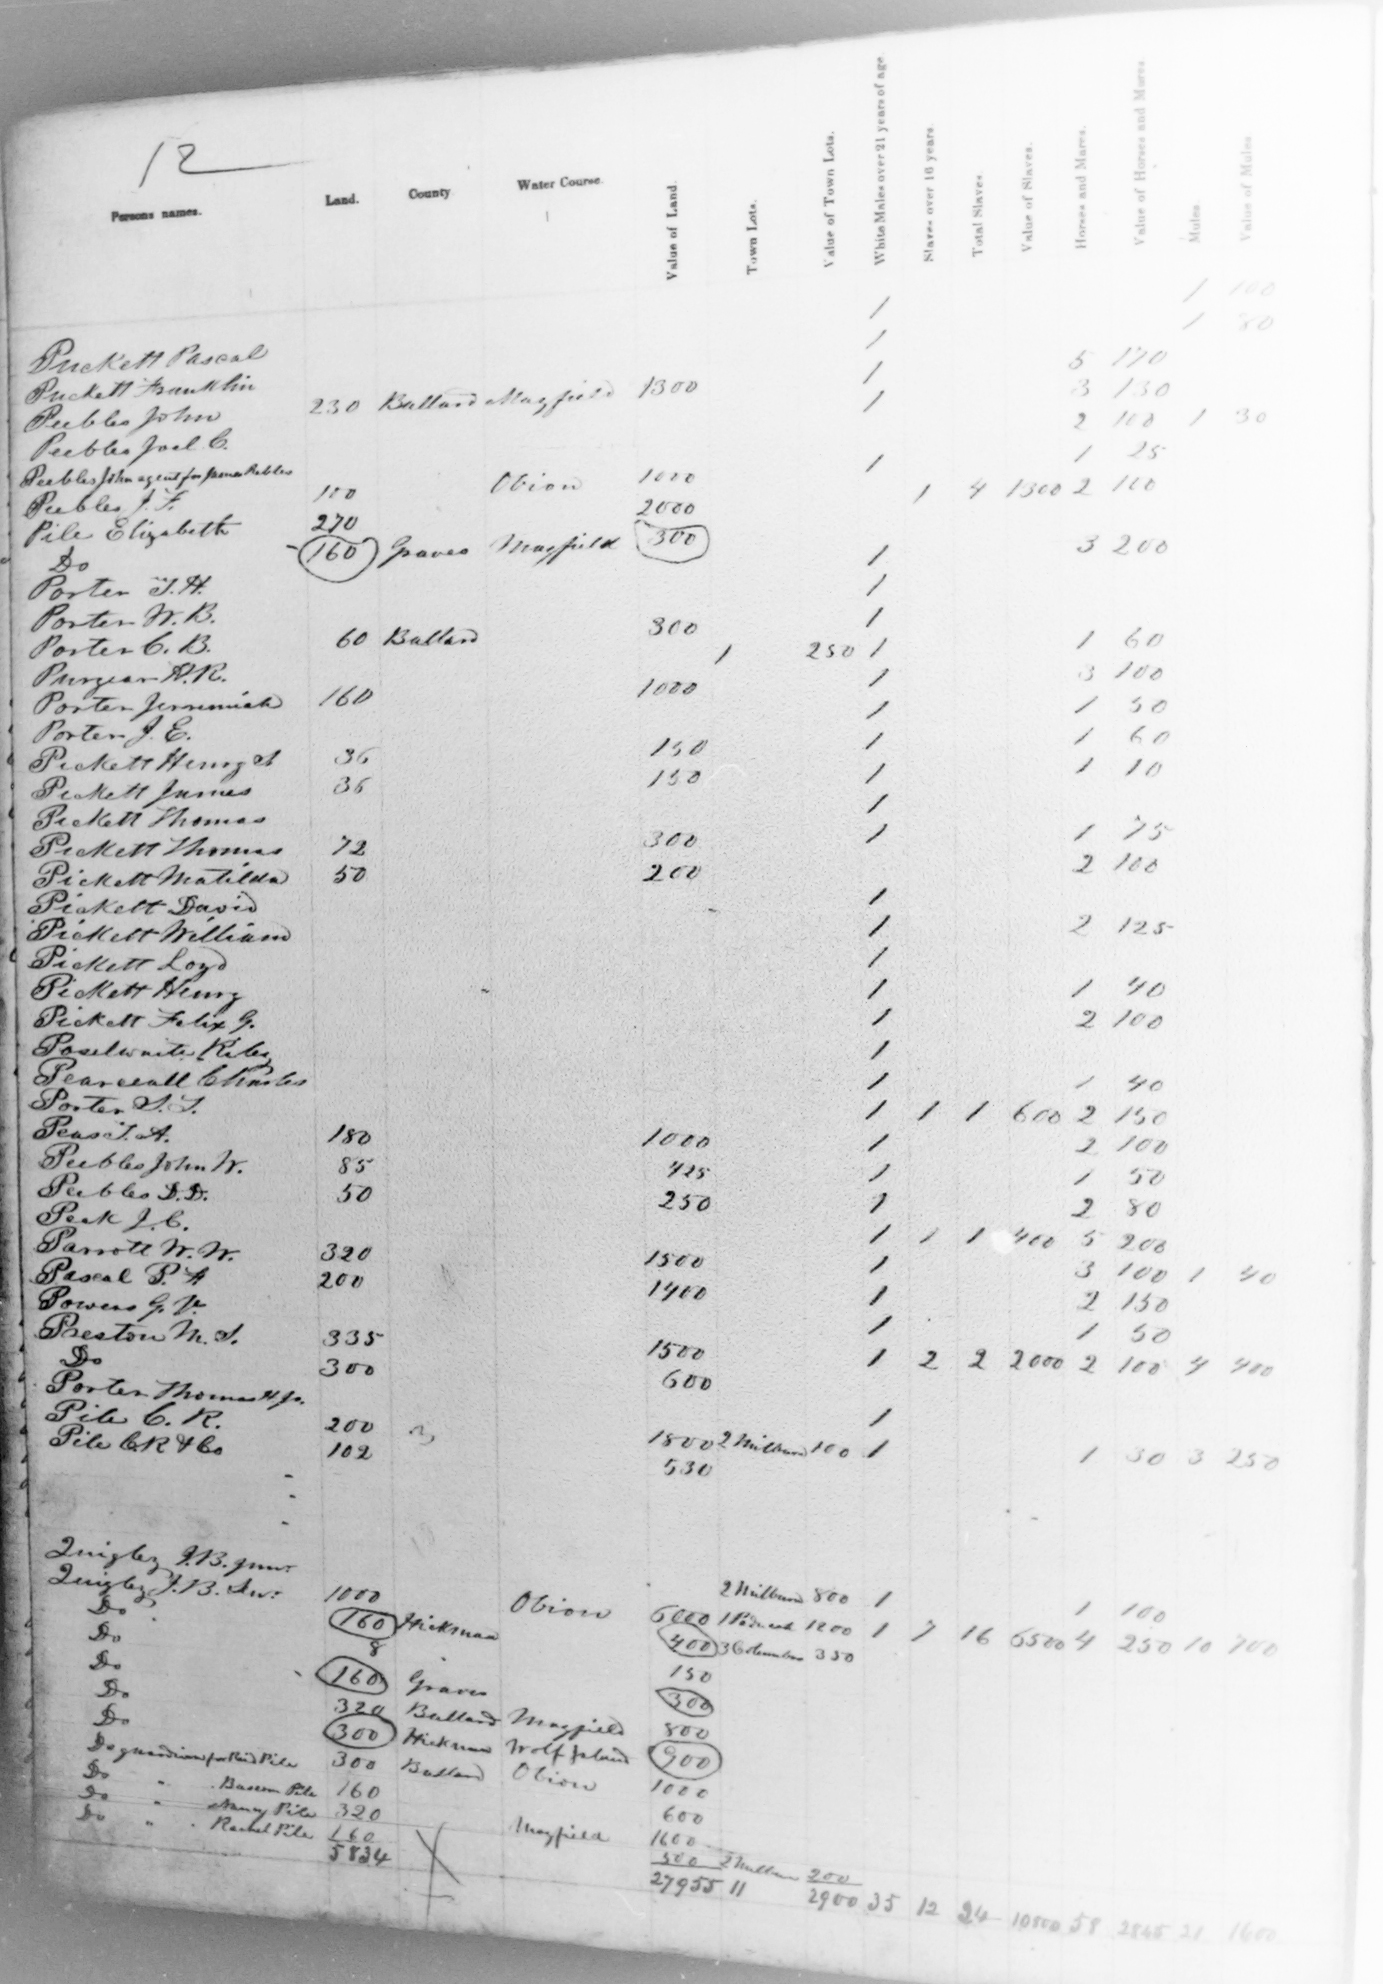 12
Persons names. Land. County. Water Course. Value of Land. Town Lots. Value of Town Lots. White Males over 21 years of age. Slaves over 16 years. Total Slaves Value of Slaves. Horses and Mares. Value of Horses and Mares. Mules. Value of Mules
Puckett Pascal 1 1 100
Puckett Franklin 1 1 80
Peebles John 230 Ballard Mayfield 1300 1 5 170
Peebles Joel C. 1 3 130
Peebles John agent for James Peebles 2 100 1 30
Peebles J. F. 100 Obion 1000 1 1 25
Pile Elizabeth 270 2000 1 4 1300 2 100
Do 160 Graves Mayfield 300
Porter T. H. 1 3 200
Porter W. B. 1
Porter C. B. 60 Ballard 300 1
Puryear H. R. 1 250 1 1 60
Porter Jeremiah 160 1000 1 3 100
Porter J. E. 1 1 50
Pickett Henry A 36 150 1 1 60
Pickett James 36 150 1 1 10
Pickett Thomas 1
Pickett Thomas 72 300 1 1 75
Pickett Matilda 50 200 2 100
Pickett David 1
Pickett William 1 2 125
Pickett Loyd 1
Pickett Henry 1 1 40
Pickett Felix G. 1 2 100
Poselwaite Riley 1
Pearceall Charles 1 1 40
Porter S. T. 1 1 1 600 2 150
Pease T. A. 180 1000 1 2 100
Peebles John W. 85 425 1 1 50
Peebles D. D. 50 250 1 2 80
Peek J. C. 1 1 1 400 5 200
Parrott W. W. 320 1500 1 3 100 1 40
Pascal P. H 200 1400 1 2 150
Powers G. V. 1 1 50
Preston M. S. 335 1500 1 2 2 2000 2 100 4 400
Do 300 600
Porter Thomas H jr. 1
Pile C. R. 200 1800 2 Milburn 100 1 1 30 3 250
Pile CR & Co 102 530
Quigley J. B. junr. 2 Milburn 800 1 1 100
Quigley J. B. Snr. 1000 Obion 6000 1 Paducah 1200 1 7 16 6500 4 250 10 700
Do 160 Hickman 400 3 Columbus 350
Do 8 150
Do 160 Graves 300
Do 320 Ballard Mayfield 800
Do 300 Hickman Wolf Island 900
Do guardian for Reid Pile 300 Ballard Obion 1000
Do " Bascom Pile 160 600
Do " Nancy Pile 320 Mayfield 1600
Do " Rachel Pile 160 500 2 Milburn 200
5834 27955 11 2900 35 12 24 10800 58 2865 21 1600